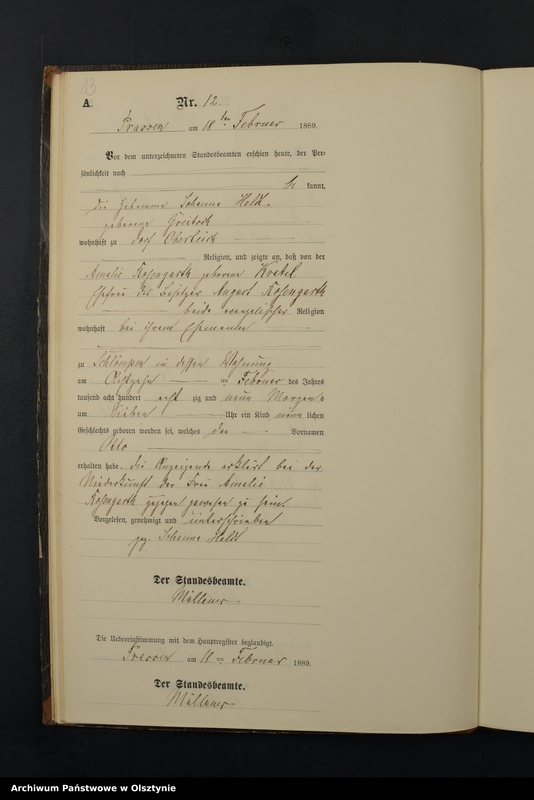 13
A. Nr. 12.
Prassen am 18ten Februar 1889.
Vor dem unterzeichneten Standesbeamten erschien heute, der Per-
sönlichkeit nach
kannt,
die Hebamme Johanne Held,
geborene
wohnhaft zu dorf
Religion, und zeigte an, daß von der
Amalie Rosengarth geborene
Ehefrau des Besitzer August Rosengarth
beide evangelischer Religion
wohnhaft bei ihrem Ehemanne
zu Schlömpen in dessen Wohnung
am Februar des Jahres
tausend acht hundert acht zig und neun Morgens
um Sieben Uhr ein Kind männ lichen
Geschlechts geboren worden sei, welches den Vornamen
Otto
erhalten habe. die Anzeigende erklärt bei der
Niederkunft der Frau Amalie
Rosengarth zugegen gewesen zu sein.
Vorgelesen, genehmigt und unterschrieben
gez. Johanne Held
Der Standesbeamte.
Die Uebereinstimmung mit dem Hauptregister beglaubigt.
Prassen am 18ten Februar 1889.
Der Standesbeamte.
Archiwum Państwowe w Olsztynie